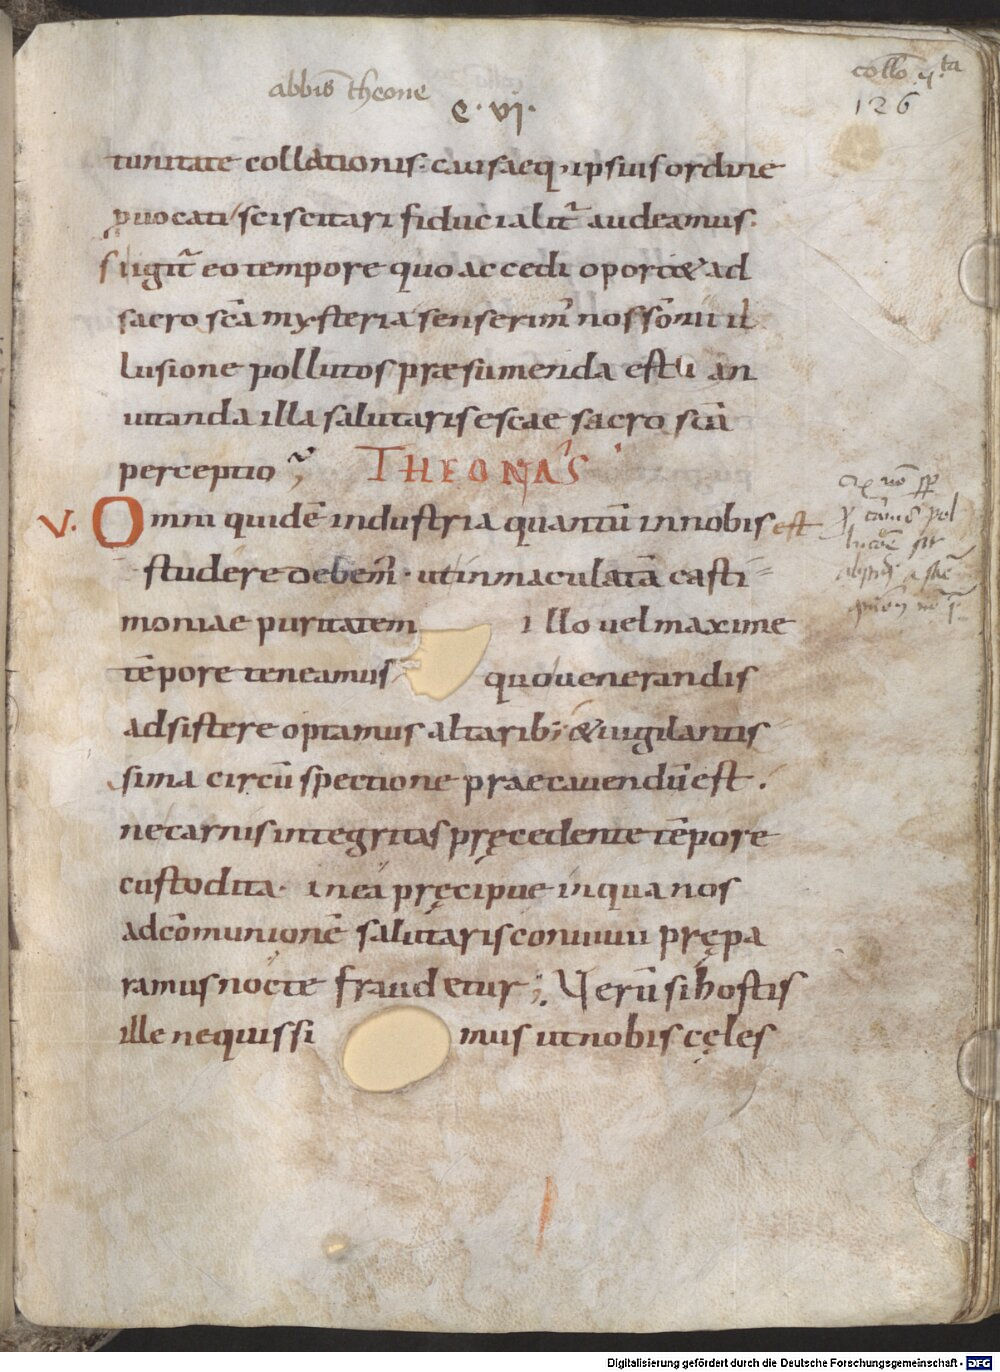 abbĩs theone
c · vj ·
collo 4ta
126
tunitate collationis. causaeq; ipsius ordine
puocati sciscitari fiducialit̃ audeamus.
sugit̃ eo tempore quo accedi oport& ad
sacro sc̃a mysteria senserim̃ nos som̃ni il
lusione pollutos praesumenda est ei an
uitanda illa salutaris escae sacro sc̃a
perceptio ; THEONAS
V. Omni quidẽ industria quantũ in nobis est
studere debem̃ · ut inmaculatã casti
moniae puritatem illo uel maxime
tẽpore teneamus quo uenerandis
adsistere optamus altarib; & uigilantis
sima circũspectione praecauendũ est .
ne carnis integritas pręcedente tẽpore
custodita · in ea pręcipue in qua nos
ad cõmunionẽ salutaris conuiuii prępa
ramus nocte fraudetur ;. Verũ si hostis
ille nequissi mus ut nobis cęles